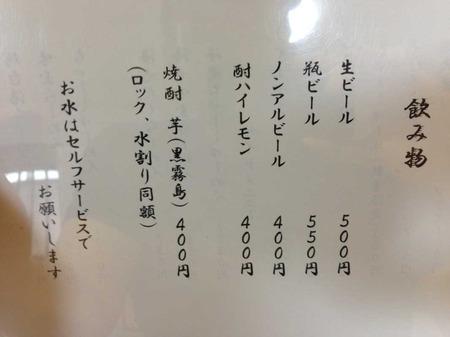 飲み物
生ビール 500円
瓶ビール 550円
ノンアルビール 400円
酎ハイレモン 400円
焼酎 芋(黒霧島) 400円
(ロック、水割り同額)
お水はセルフサービスで
お願いします